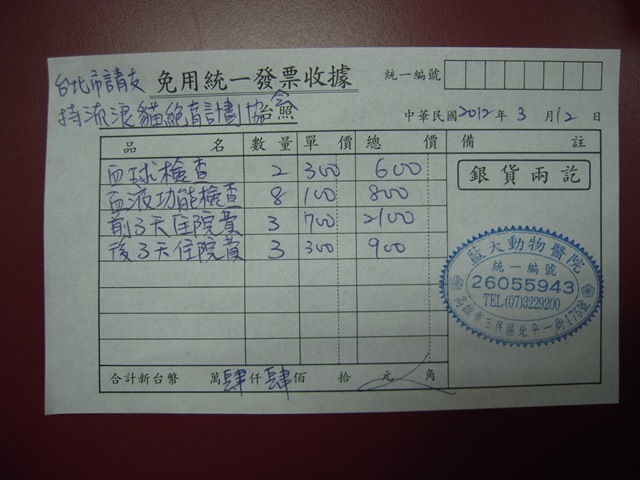 免用統一發票收據
統一編號
台北市請支
持流浪貓絕育計劃協會
台照
中華民國2012年3月12日
品名 數量 單價 總價 備註
血球檢查 2 300 600
銀貨兩訖
血液功能檢查 8 100 800
前3天住院費 3 700 2100
後3天住院費 3 300 900
藍天動物醫院
統一編號
26055943
TEL:(07)3229200
高雄市三民區北平一街175號
合計新台幣 萬肆仟肆佰 拾 元 角